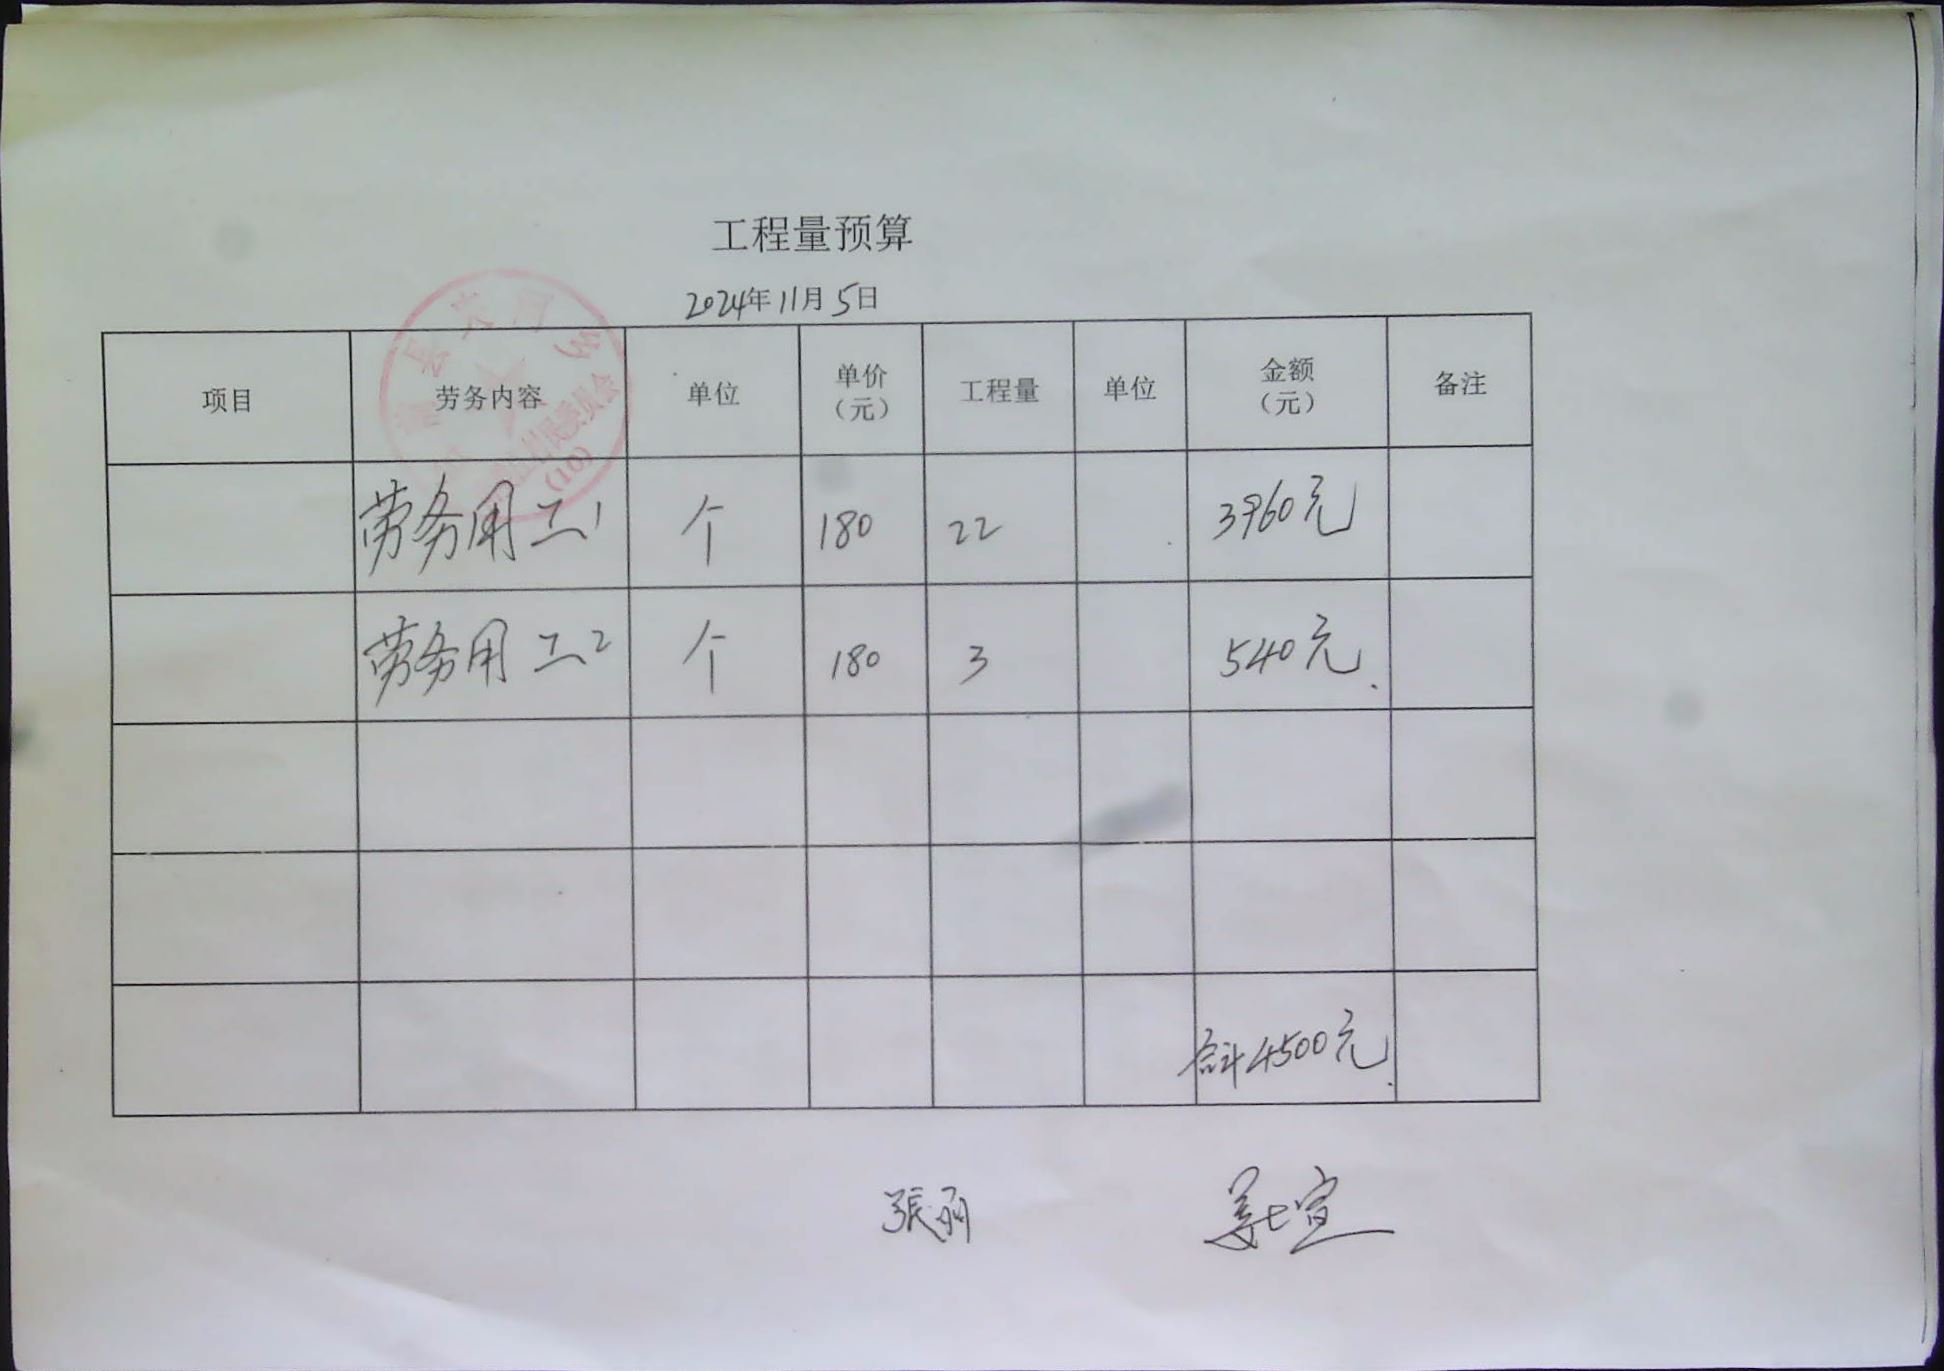 工程量预算
2024年11月5日
项目 劳务内容 单位 单价（元） 工程量 单位 金额（元） 备注
劳务用工1 个 180 22 3960元
劳务用工2 个 180 3 540元
合计4500元
民委员会
(10)